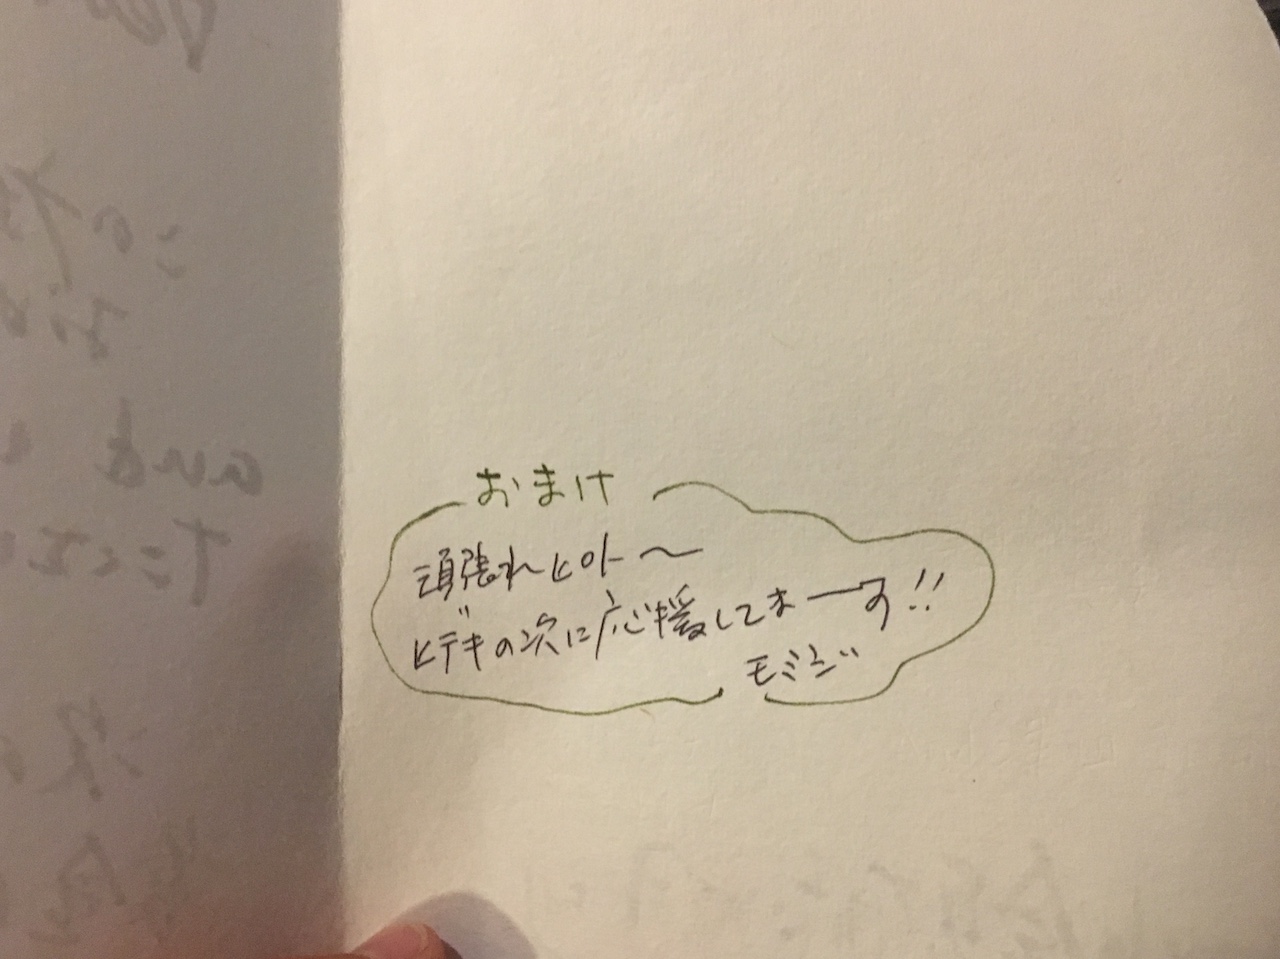 おまけ
頑張れヒロト〜
ヒデキの次に応援してまーす!!
モミジ